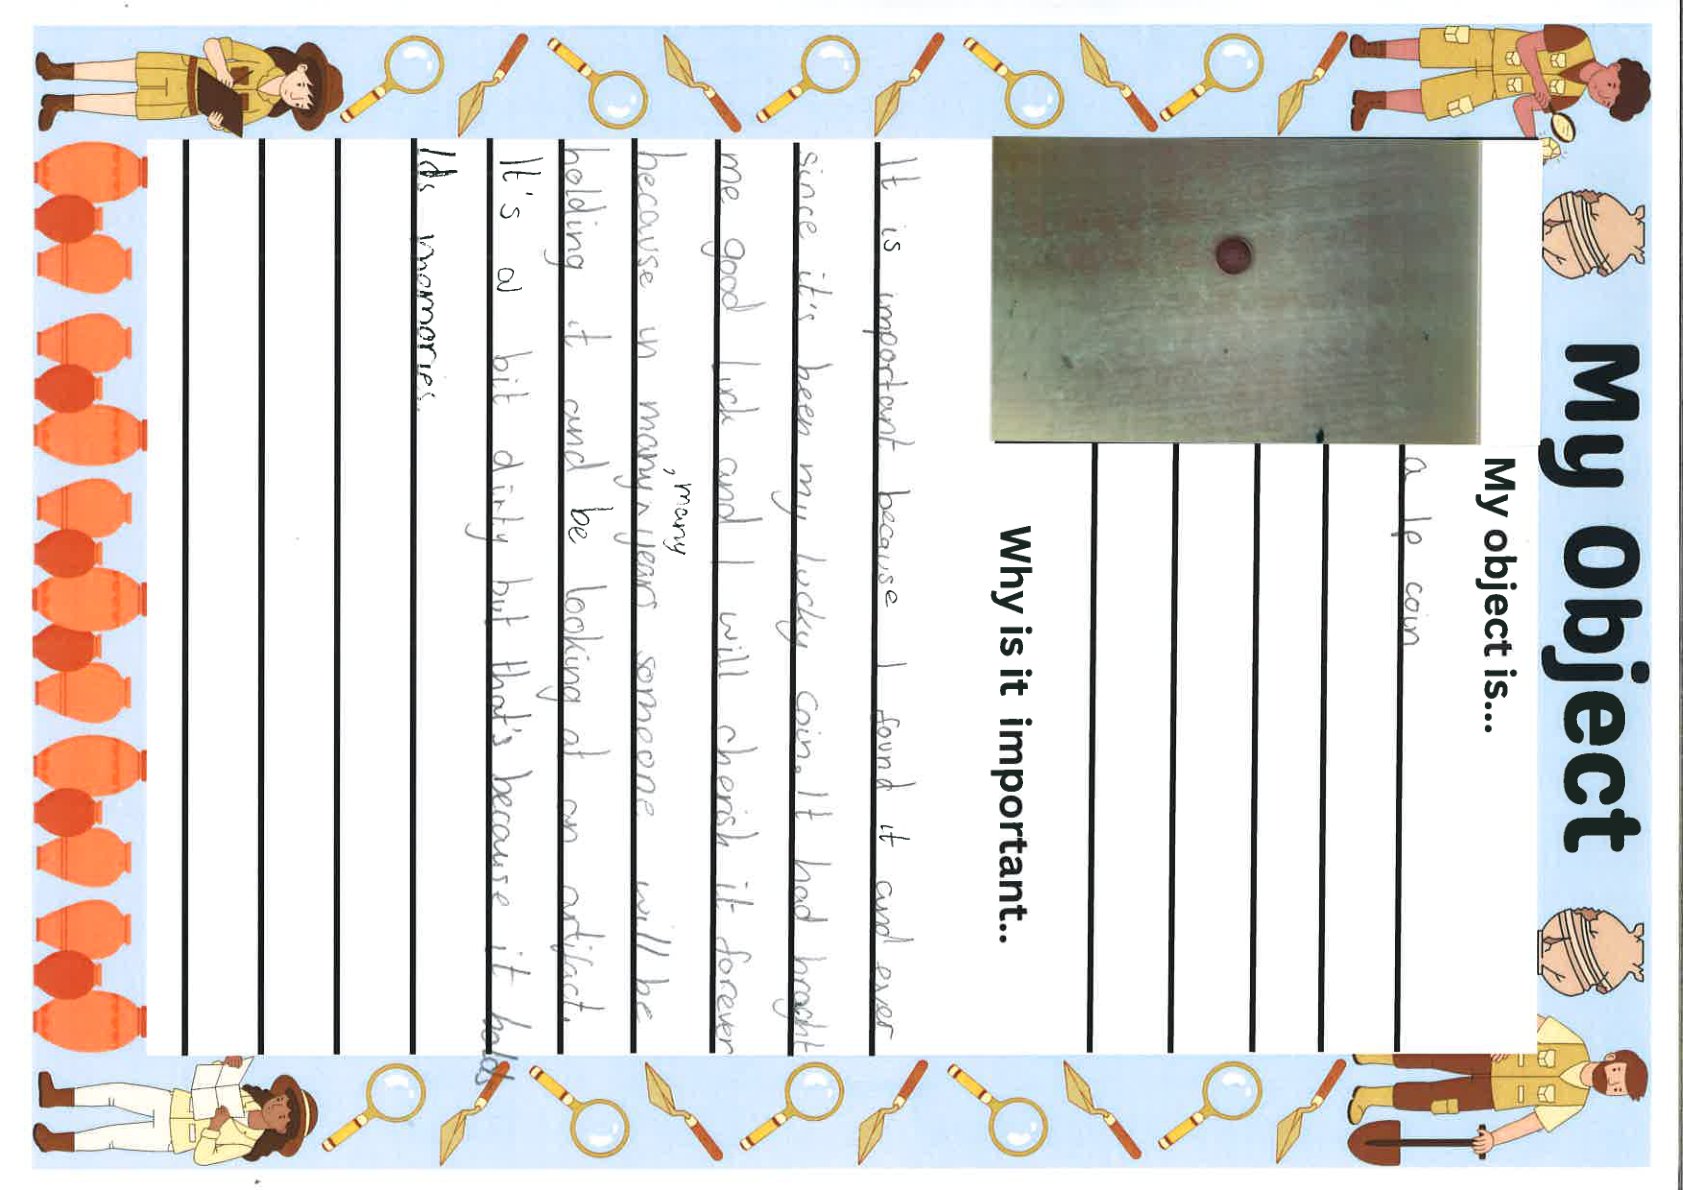 My Object
My object is...
a 1p coin
Why is it important..
It is important because I found it and ever
since it's been my lucky coin. It had braght
me good luck and I will cherish it forever
because in many, many years someone will be
holding it and be looking at an artifact.
It's a bit dirty but that's because it holds
lds memories.